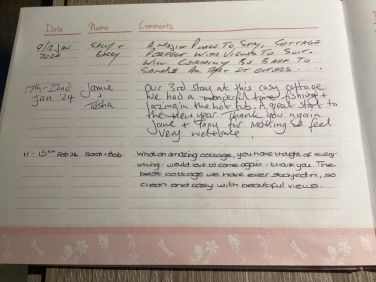 Date Name Comments
9/12 Jan Sally + A Magic Place To Stay, Cottage
2024 Barry Perfect With Views To Suit.
Will Certainly Be Back To
Sample All That It Offers....
17th-22nd Jamie Our 3rd stay at this cosy cottage
Jan 24 & We had a wonderful time fishing +
Tasha lazing in the hot tub. A great start to
the new year. Thank you again
Jane + Tony for making us feel
very welcome
11-15th Feb 24 Sarah+Bob What an amazing cottage, you have thought of every-
thing. would love to come again. thank you. The
best cottage we have ever stayed in, so
clean and cosy with beautiful views.